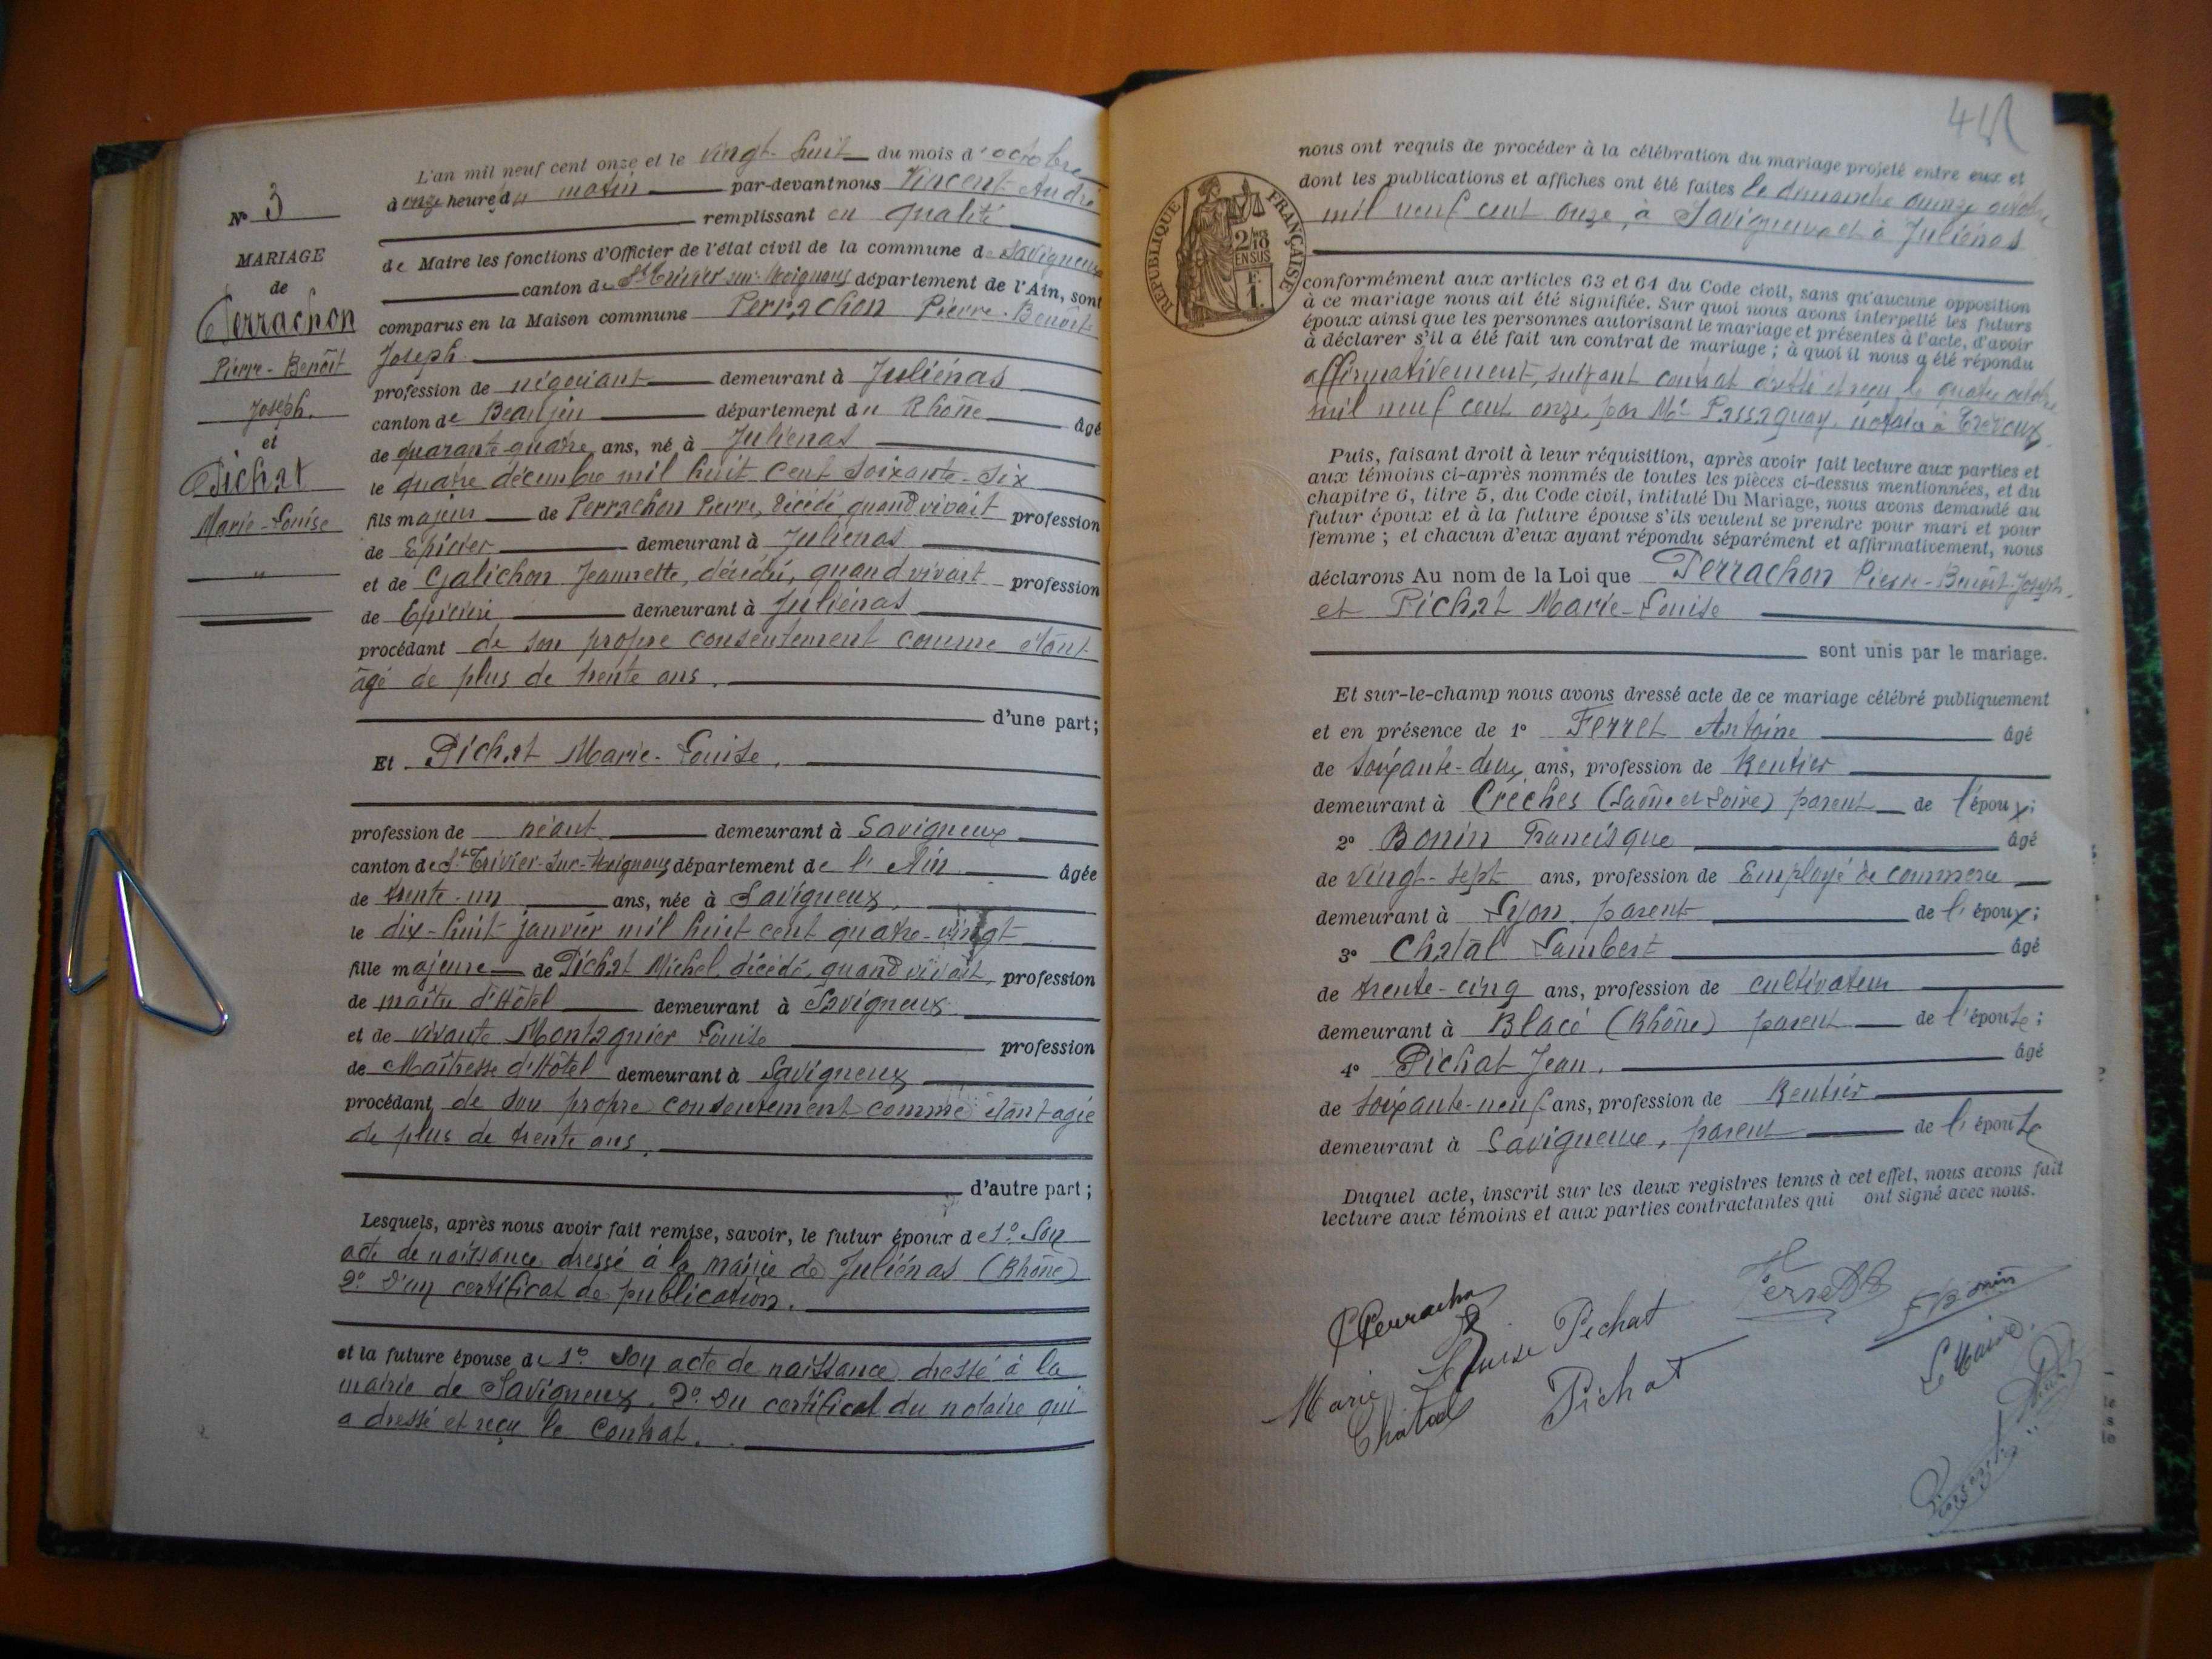 N° 3
MARIAGE
de
Perrachon
Pierre-Benoît
Joseph.
et
Pichat
Marie-Louise
"
L'an mil neuf cent onze et le vingt-huit du mois d'octobre
à onze heure du matin par-devant nous Vincent André
remplissant en qualité
de Maire les fonctions d'Officier de l'état civil de la commune de Savigneux
canton de St Trivier-sur-Moignans département de l'Ain, sont
comparus en la Maison commune Perrachon Pierre-Benoît
Joseph.
profession de négociant demeurant à Juliénas
canton de Beaujeu département du Rhône âgé
de quarante-quatre ans, né à Juliénas
le quatre décembre mil huit cent soixante-six
fils majeur de Perrachon Pierre, décédé, quand vivait profession
de Epicier demeurant à Juliénas
et de Galichon Jeannette, décédée, quand vivait profession
de Epicière demeurant à Juliénas
procédant de son propre consentement comme étant
âgé de plus de trente ans.
d'une part;
Et Pichat Marie-Louise.
profession de néant demeurant à Savigneux
canton de St Trivier-sur-Moignans département de l'Ain âgée
de trente-un ans, née à Savigneux,
le dix-huit janvier mil huit cent quatre-vingt
fille majeure de Pichat Michel, décédé, quand vivait, profession
de maître d'Hôtel demeurant à Savigneux
et de vivante Montagnier Louise profession
de Maîtresse d'Hôtel demeurant à Savigneux
procédant de son propre consentement comme étant agée
de plus de trente ans.
d'autre part;
Lesquels, après nous avoir fait remise, savoir, le futur époux de 1° Son
acte de naissance dressé à la mairie de Juliénas (Rhône)
2° D'un certificat de publication.
et la future épouse de 1° Son acte de naissance dressé à la
mairie de Savigneux. 2° Du certificat du notaire qui
a dressé et reçu le Contrat.
RÉPUBLIQUE FRANÇAISE
2/10
EN SUS
F.
1.
nous ont requis de procéder à la célébration du mariage projeté entre eux et
dont les publications et affiches ont été faites le dimanche quinze octobre
mil neuf cent onze, à Savigneux et à Juliénas
conformément aux articles 63 et 64 du Code civil, sans qu'aucune opposition
à ce mariage nous ait été signifiée. Sur quoi nous avons interpellé les futurs
époux ainsi que les personnes autorisant le mariage et présentes à l'acte, d'avoir
à déclarer s'il a été fait un contrat de mariage; à quoi il nous a été répondu
affirmativement, suivant contrat dressé et reçu le quatre octobre
mil neuf cent onze par Me Passaquay, notaire à Trévoux
Puis, faisant droit à leur réquisition, après avoir fait lecture aux parties et
aux témoins ci-après nommés de toutes les pièces ci-dessus mentionnées, et du
chapitre 6, titre 5, du Code civil, intitulé Du Mariage, nous avons demandé au
futur époux et à la future épouse s'ils veulent se prendre pour mari et pour
femme; et chacun d'eux ayant répondu séparément et affirmativement, nous
déclarons Au nom de la Loi que Perrachon Pierre-Benoît-Joseph.
et Pichat Marie-Louise
sont unis par le mariage.
Et sur-le-champ nous avons dressé acte de ce mariage célébré publiquement
et en présence de 1° Ferret Antoine âgé
de soixante-deux ans, profession de Rentier
demeurant à Crèches (Saône et Loire) parent de l'époux;
2° Bonin Francisque âgé
de vingt-sept ans, profession de Employé de commerce
demeurant à Lyon. parent de l'époux;
3° Chatal Lambert âgé
de trente-cinq ans, profession de cultivateur
demeurant à Blacé (Rhône) parent de l'épouse;
4° Pichat Jean. âgé
de soixante-neuf ans, profession de Rentier
demeurant à Savigneux, parent de l'épouse
Duquel acte, inscrit sur les deux registres tenus à cet effet, nous avons fait
lecture aux témoins et aux parties contractantes qui ont signé avec nous.
Perrachon
Marie Louise Pichat
Ferret
F Bonin
Chatal
Pichat
Le Maire.